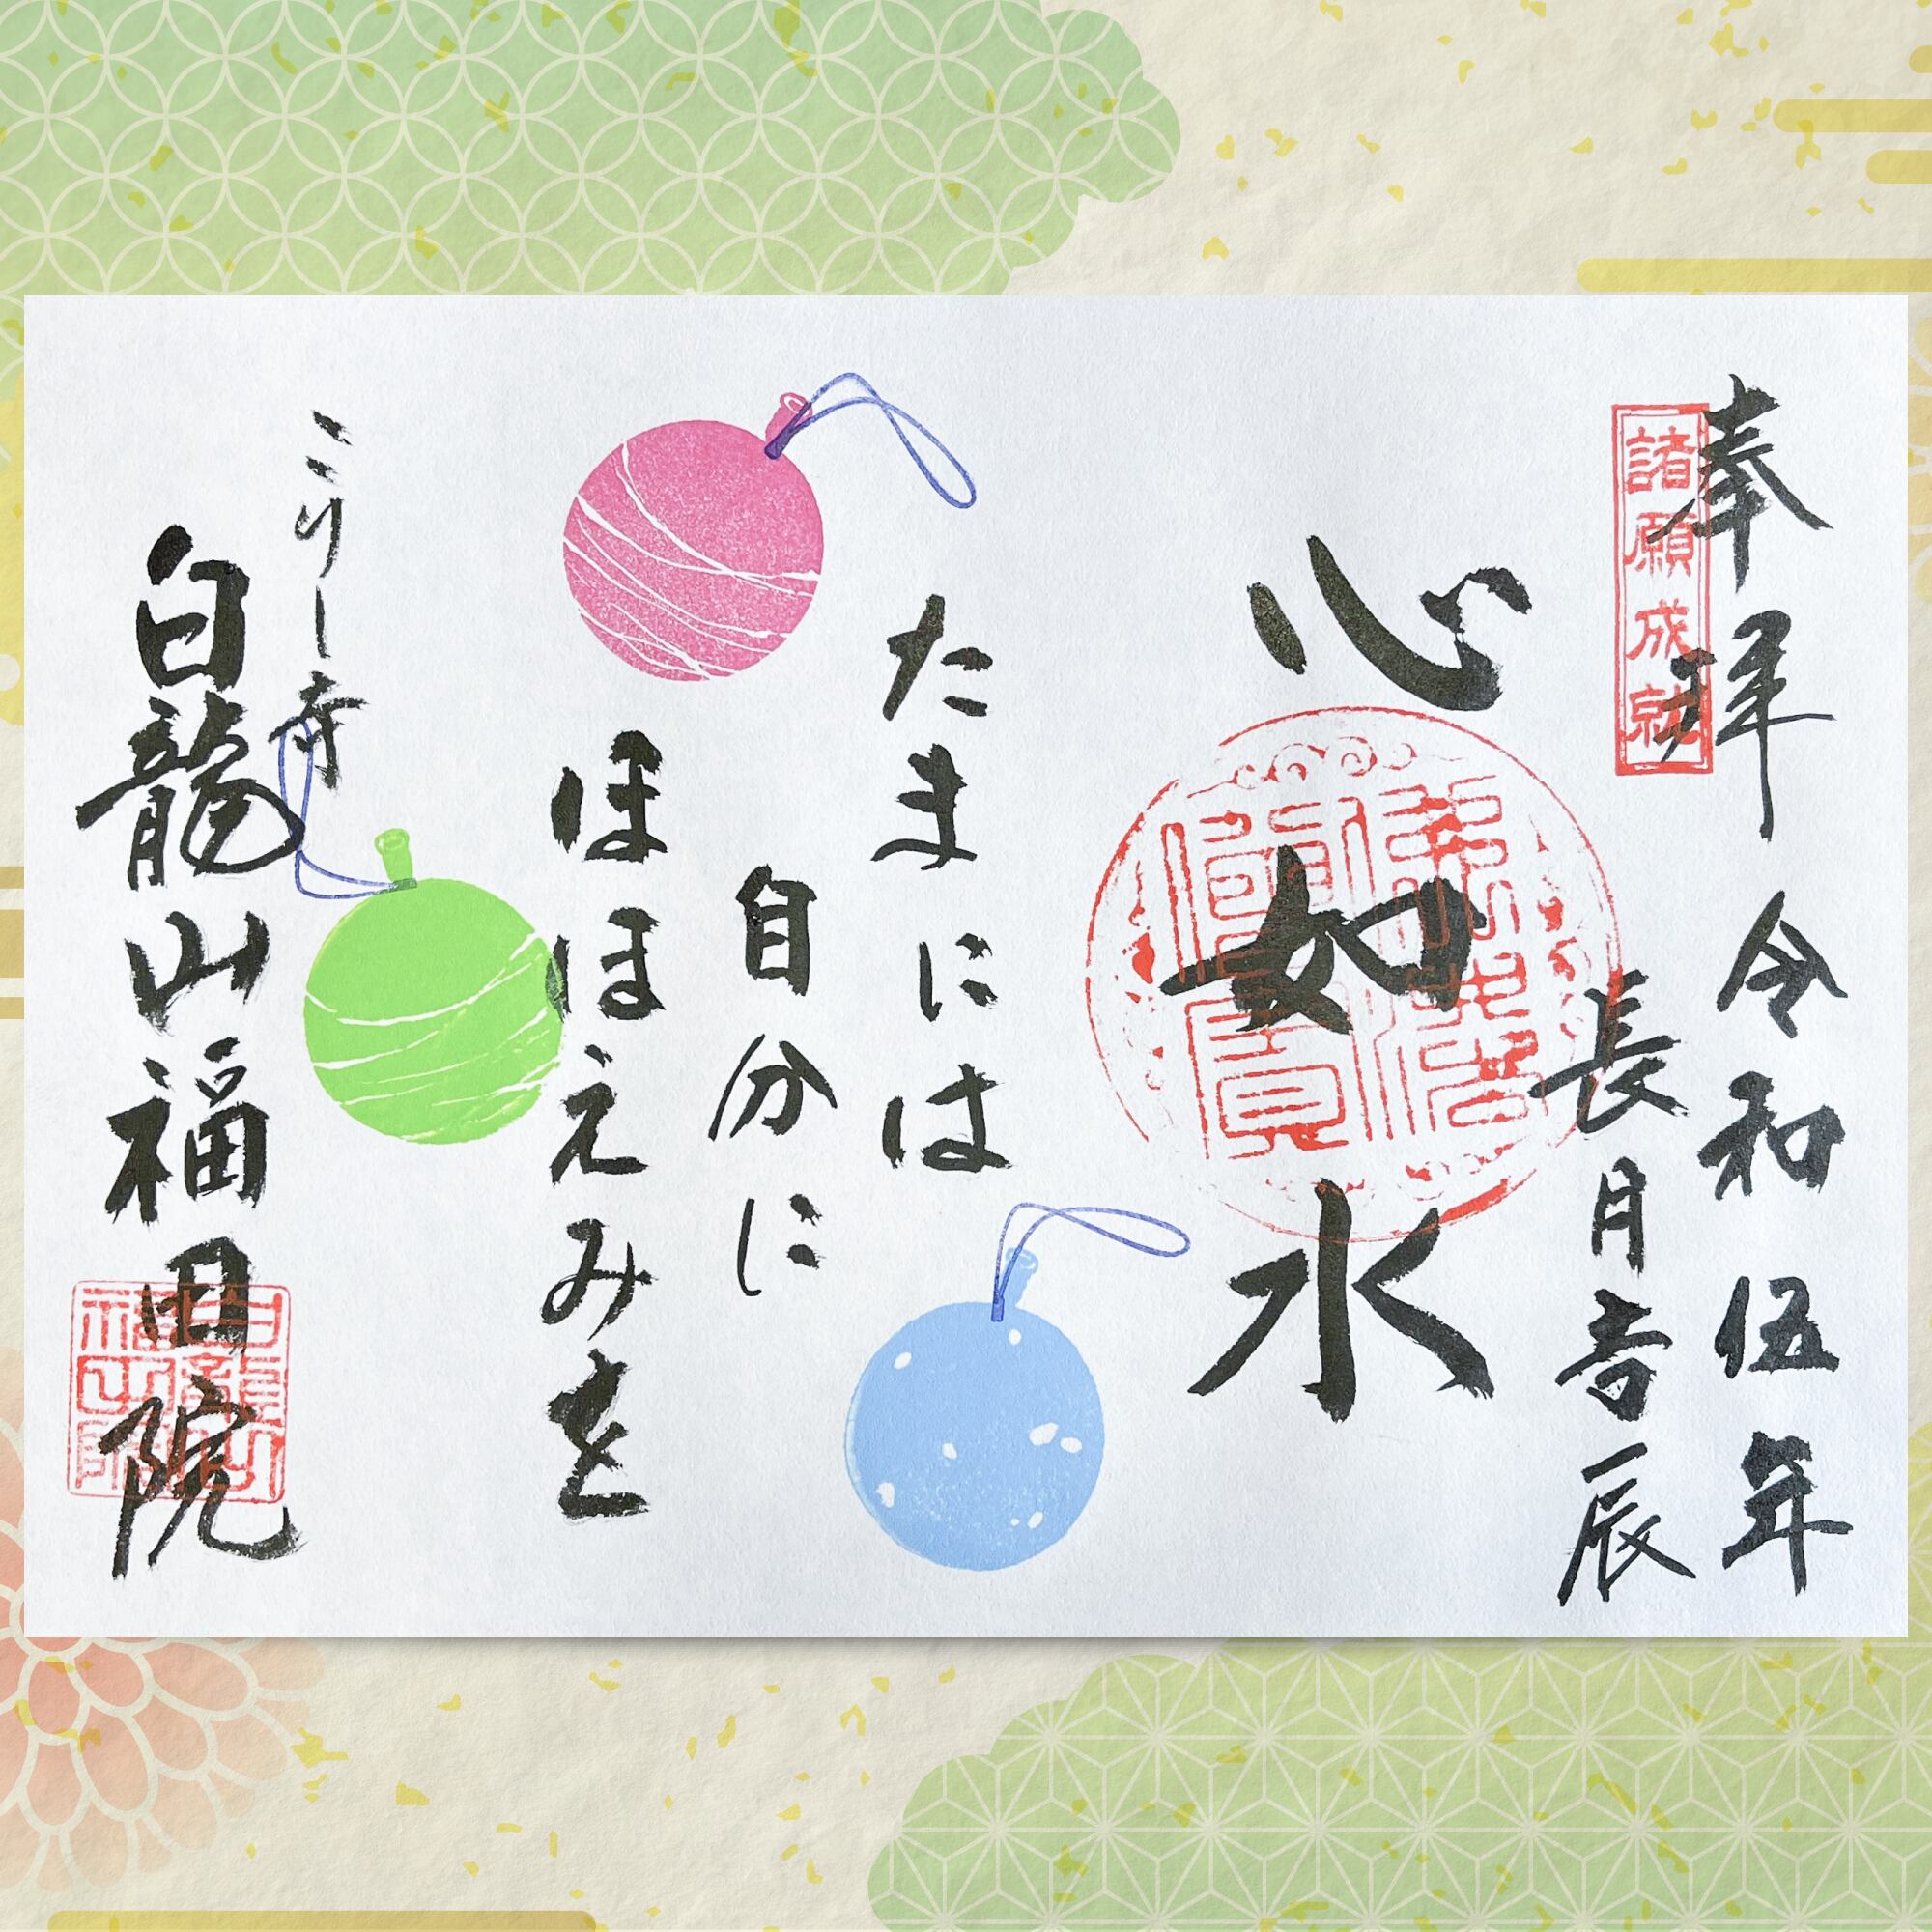 奉拝
諸願成就
令和伍年
長月吉辰
心如水
たまには
自分に
ほほえみを
ミリー寺
白龍山福田院